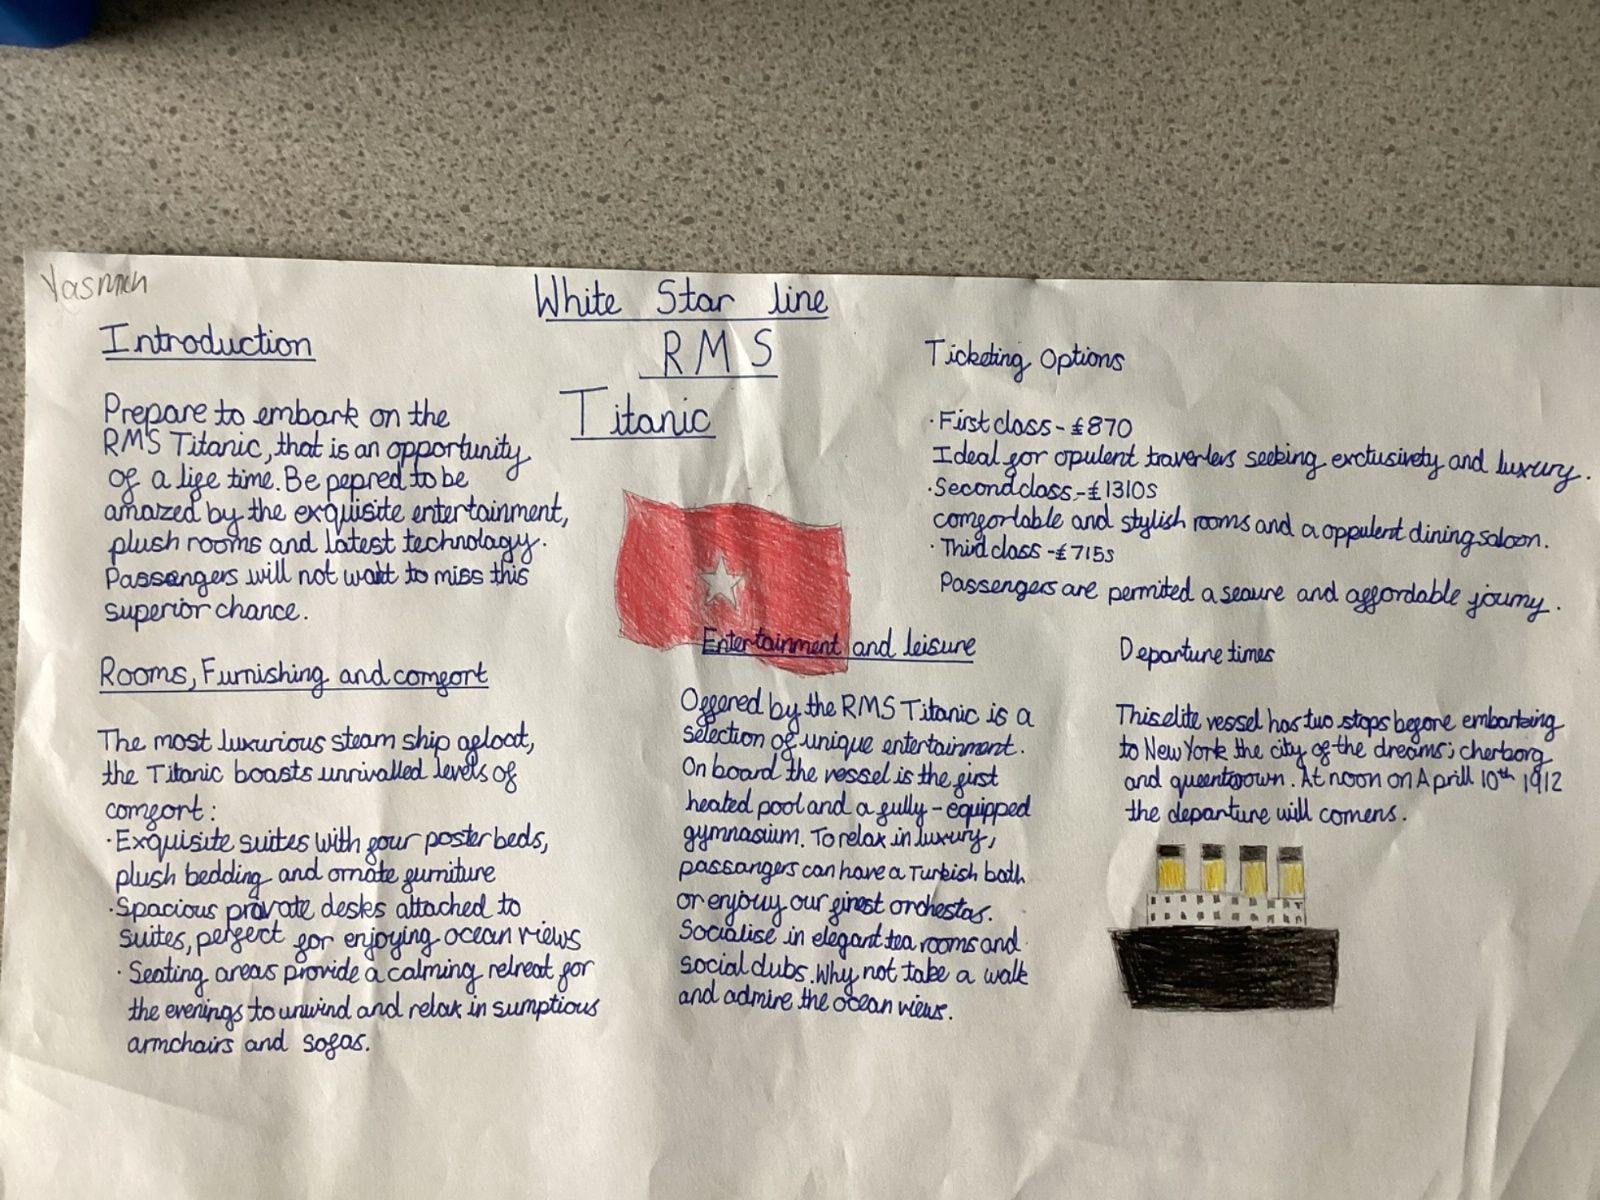 Yasmin
White Star line
RMS
Titanic
Introduction
Prepare to embark on the
RMS Titanic, that is an opportunity
of a life time. Be pepred to be
amazed by the exquisite entertainment,
plush rooms and latest technology.
Passengers will not want to miss this
superior chance.
Rooms, Furnishing and comfort
The most luxurious steam ship afloat,
the Titanic boasts unrivalled levels of
comfort:
· Exquisite suites with four poster beds,
plush bedding and ornate furniture
· Spacious private desks attached to
suites, perfect for enjoying ocean views
· Seating areas provide a calming retreat for
the evenings to unwind and relax in sumptious
armchairs and sofas.
Entertainment and leisure
Offered by the RMS Titanic is a
selection of unique entertainment.
On board the vessel is the first
heated pool and a fully-equipped
gymnasium. To relax in luxury,
passangers can have a Turkish bath
or enjouy our finest orchestas.
Socialise in elegant tea rooms and
social clubs. Why not take a walk
and admire the ocean views.
Ticketing Options
· First class - £870
Ideal for opulent traverlers seeking exctusivety and luxury.
· Second class - £1310s
comfortable and stylish rooms and a oppulent dining saloon.
· Third class - £715s
Passengers are permited a secure and affordable journy.
Departure times
This elite vessel has two stops before embarking
to New York the city of the dreams; cherborg
and queentown. At noon on Aprill 10th 1912
the departure will comens.